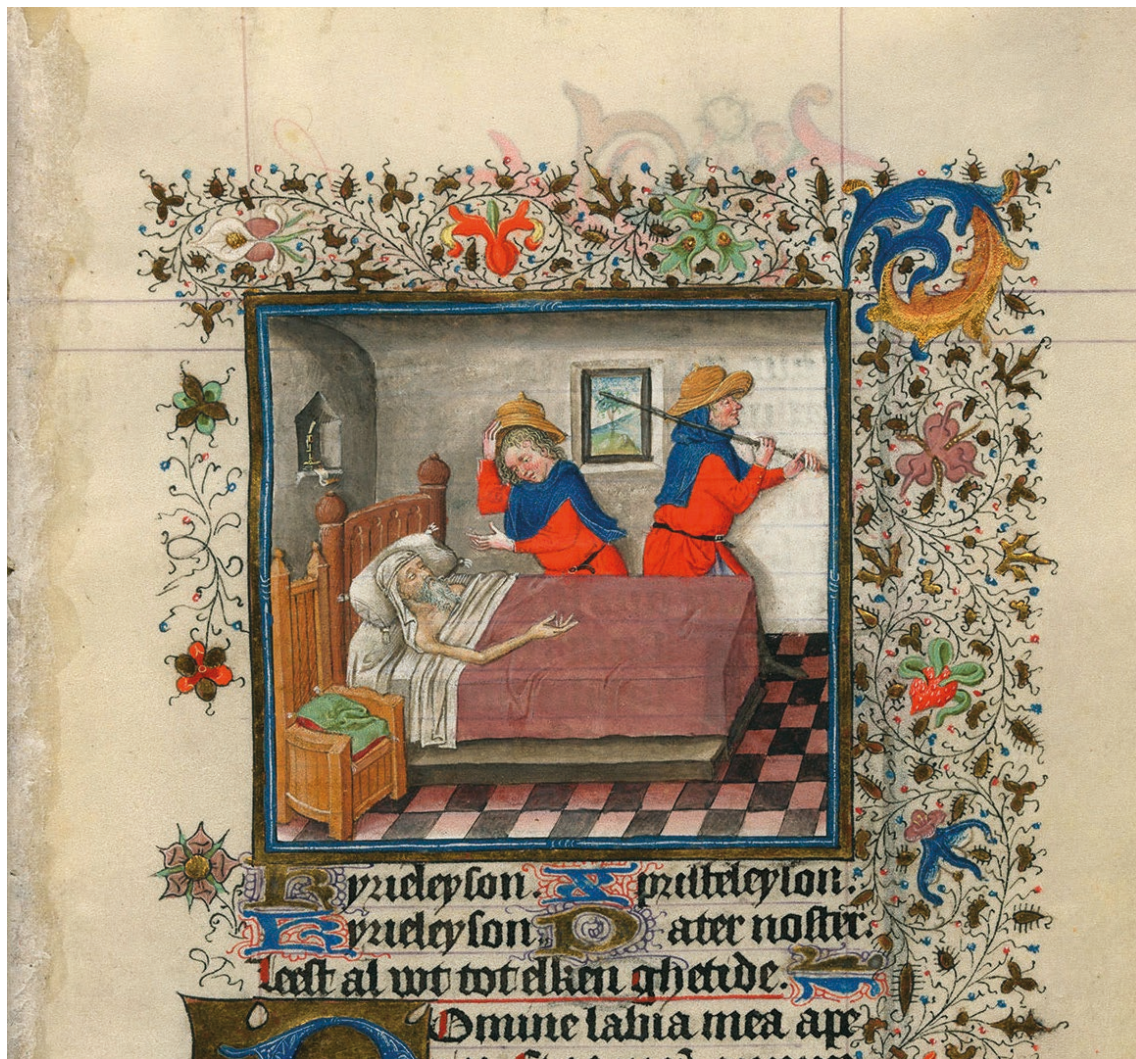 Kyrieleyson. Xpristeleyson.
Kyrieleyson Pater noster.
Leest al wt tot elken ghetide.
Domine labia mea ape